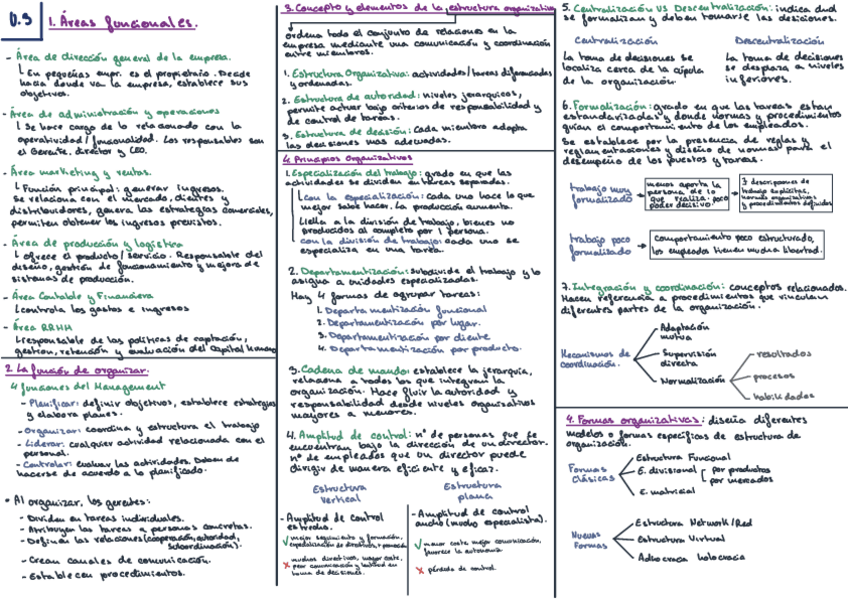 U.3
1. Áreas funcionales.
- Área de dirección general de la empresa.
↳ En pequeñas empr. es el propietario. Decide
hacia donde va la empresa, establece sus
objetivos.
- Área de administración y operaciones
↳ Se hace cargo de lo relacionado con la
operatividad/funcionalidad. Los responsables son
el Gerente, director y CEO.
- Área marketing y ventas.
↳ Función principal: generar ingresos.
Se relaciona con el mercado, clientes y
distribuidores, genera las estrategias comerciales,
permiten obtener los ingresos previstos.
- Área de producción y logística
↳ ofrece el producto/servicio. Responsable del
diseño, gestión de funcionamiento y mejora de
sistemas de producción.
- Área Contable y Financiera
↳ controla los gastos e ingresos
- Área RRHH
↳ responsable de las políticas de captación,
gestión, retención y evaluación del Capital humano
2. La función de organizar.
4 funciones del Management
- Planificar: definir objetivos, establece estrategias
y elabora planes.
- Organizar: coordina y estructura el trabajo
- Liderar: cualquier actividad relacionada con el
personal.
- Controlar: evaluar las actividades. Deben de
hacerse de acuerdo a lo planificado.
• Al organizar, los gerentes:
- Dividen en tareas individuales.
- Atribuyen las tareas a personas concretas.
- Definen las relaciones (cooperación, autoridad,
subordinación).
- Crean canales de comunicación.
- Establecen procedimientos.
3. Concepto y elementos de la estructura organizativa
ordena todo el conjunto de relaciones en la
empresa mediante una comunicación y coordinación
entre miembros.
1. Estructura Organizativa: actividades/tareas diferenciadas
y ordenadas.
2. Estructura de autoridad: niveles jerárquicos,
permite actuar bajo criterios de responsabilidad y
de control de tareas.
3. Estructura de decisión: Cada miembro adapta
las decisiones mas adecuadas.
4. Principios organizativos
1. Especialización del trabajo: grado en que las
actividades se dividen en tareas separadas.
con la especialización: cada uno hace lo que
mejor sabe hacer. La producción aumenta.
Lleva a la división de trabajo, bienes no
producidos al completo por 1 persona.
con la división de trabajo: cada uno se
especializa en una tarea.
2. Departamentización: subdivide el trabajo y lo
asigna a unidades especializadas.
Hay 4 formas de agrupar tareas:
1. Departamentización funcional
2. Departamentización por lugar.
3. Departamentización por cliente
4. Departamentización por producto.
3. Cadena de mando: establece la jerarquía,
relaciona a todos los que integran la
organización. Hace fluir la autoridad y
responsabilidad desde niveles organizativos
mayores a menores.
4. Amplitud de control: nº de personas que se
encuentran bajo la dirección de un director.
nº de empleados que un director puede
dirigir de manera eficiente y eficaz.
Estructura
vertical
Estructura
plana
- Amplitud de control
estrecho.
✓ mejor seguimiento y formación,
especialización de directivos,
✗ muchos directivos, mayor coste,
peor comunicación y lentitud en
toma de decisiones.
- Amplitud de control
ancho (modo especialista).
✓ menor coste mejor comunicación,
favorece la autonomía
✗ pérdida de control.
5. Centralización VS Descentralización: indica dnd
se formalizan y deben tomarse las decisiones.
Centralización
La toma de decisiones se
localiza cerca de la cúpola
de la organización.
Descentralización
La toma de decisiones
se desplaza a niveles
inferiores.
6. Formalización: grado en que las tareas estan
estandarizadas y donde normas y procedimientos
guían el comportamiento de los empleados.
Se establece por la presencia de reglas y
reglamentaciones y diseño de normas para el
desempeño de los puestos y tareas.
trabajo muy
formalizado
menos aporta la
persona de lo
que realiza. poco
poder decisivo.
∃ descripciones de
trabajo explícitas,
normas organizativas
y procedimientos definidos
trabajo poco
formalizado
comportamiento poco estructurado,
los empleados tienen mucha libertad.
7. Integración y coordinación: conceptos relacionados.
Hacen referencia a procedimientos que vinculan
diferentes partes de la organización.
Mecanismos de
coordinación.
Adaptación
mutua
Supervisión
directa
Normalización
resultados
procesos
habilidades
4. Formas organizativas: diseña diferentes
modelos o formas específicas de estructura de
organización.
Formas
Clásicas
Estructura Funcional
E. divisional
por productos
por mercados
E. matricial
Nuevas
Formas
Estructura Network/Red
Estructura Virtual
Adhocracia holocracia